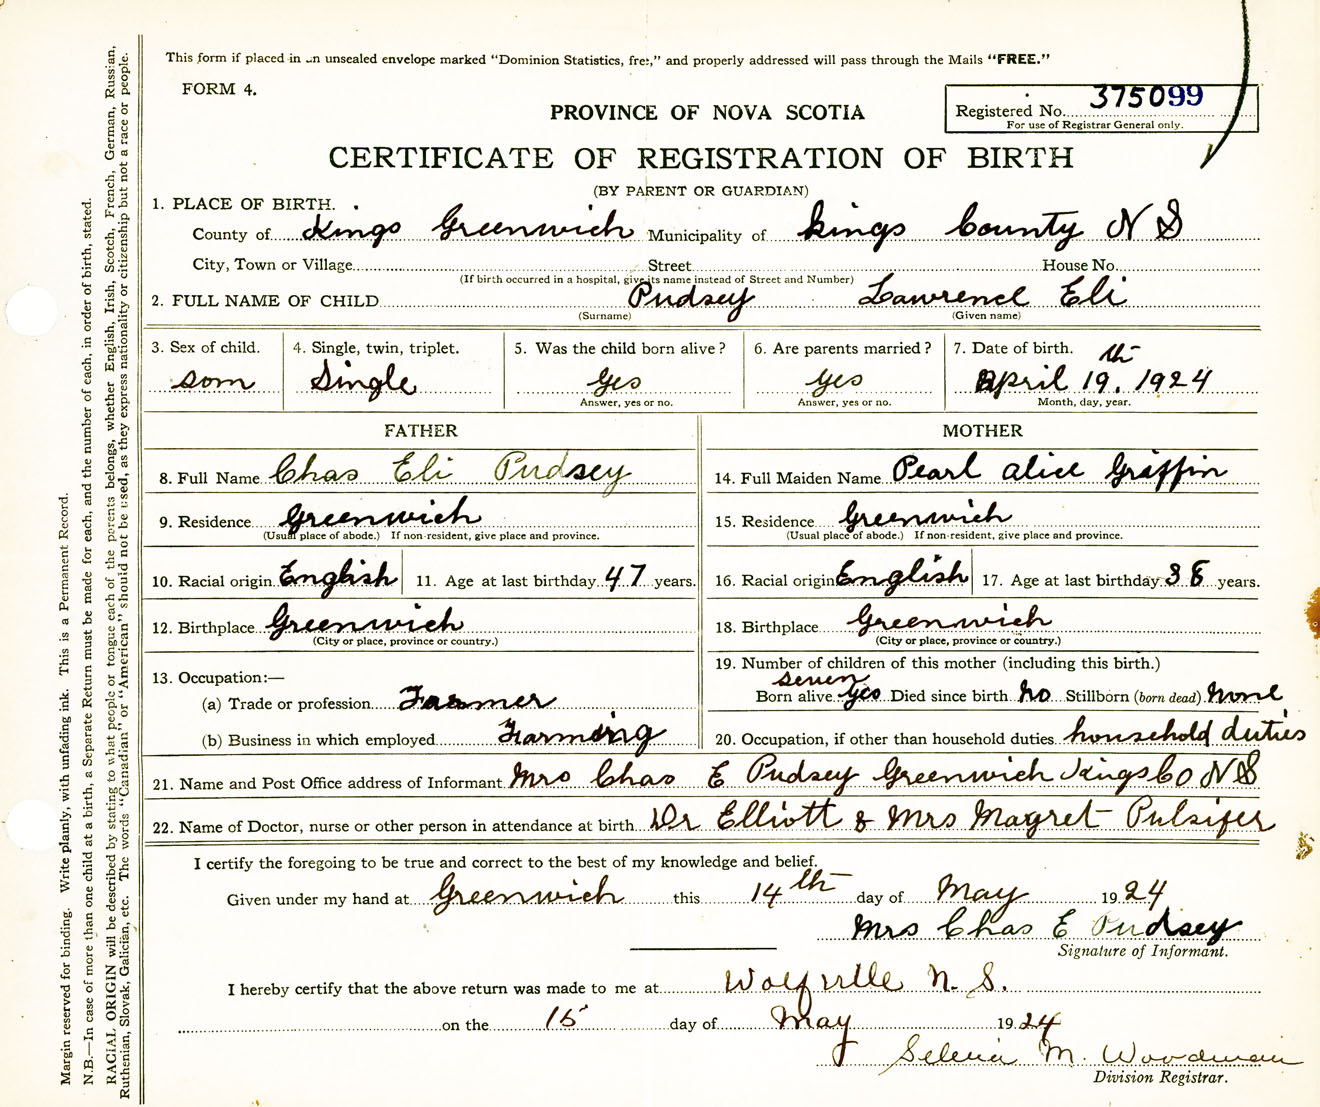 This form if placed in an unsealed envelope marked "Dominion Statistics, free," and properly addressed will pass through the Mails "FREE."
FORM 4.
PROVINCE OF NOVA SCOTIA
Registered No. 375099
For use of Registrar General only.
CERTIFICATE OF REGISTRATION OF BIRTH
(BY PARENT OR GUARDIAN)
1. PLACE OF BIRTH.
County of Kings Greenwich Municipality of Kings County N S
City, Town or Village Street House No.
(If birth occurred in a hospital, give its name instead of Street and Number)
2. FULL NAME OF CHILD Pudsey Lawrence Eli
(Surname) (Given name)
3. Sex of child. 4. Single, twin, triplet. 5. Was the child born alive? 6. Are parents married? 7. Date of birth.
son Single Yes Yes April 19th, 1924
Answer, yes or no. Answer, yes or no. Month, day, year.
FATHER MOTHER
8. Full Name Chas Eli Pudsey 14. Full Maiden Name Pearl Alice Griffin
9. Residence Greenwich 15. Residence Greenwich
(Usual place of abode.) If non-resident, give place and province. (Usual place of abode.) If non-resident, give place and province.
10. Racial origin English 11. Age at last birthday 47 years. 16. Racial origin English 17. Age at last birthday 38 years.
12. Birthplace Greenwich 18. Birthplace Greenwich
(City or place, province or country.) (City or place, province or country.)
13. Occupation:— 19. Number of children of this mother (including this birth.)
seven
(a) Trade or profession Farmer Born alive Yes Died since birth No Stillborn (born dead) None
(b) Business in which employed Farming 20. Occupation, if other than household duties household duties
21. Name and Post Office address of Informant Mrs Chas E Pudsey Greenwich Kings Co N S
22. Name of Doctor, nurse or other person in attendance at birth Dr Elliott & Mrs Magret Pulsifer
I certify the foregoing to be true and correct to the best of my knowledge and belief.
Given under my hand at Greenwich this 14th day of May 1924
Mrs Chas E Pudsey
Signature of Informant.
I hereby certify that the above return was made to me at Wolfville N. S.
on the 15 day of May 1924
Selena M. Woodman
Division Registrar.
Margin reserved for binding. Write plainly, with unfading ink. This is a Permanent Record.
N.B.—In case of more than one child at a birth, a Separate Return must be made for each, and the number of each, in order of birth, stated.
RACIAL ORIGIN will be described by stating to what people or tongue each of the parents belongs, whether English, Irish, Scotch, French, German, Russian,
Ruthenian, Slovak, Galician, etc. The words "Canadian" or "American" should not be used, as they express nationality or citizenship but not a race or people.